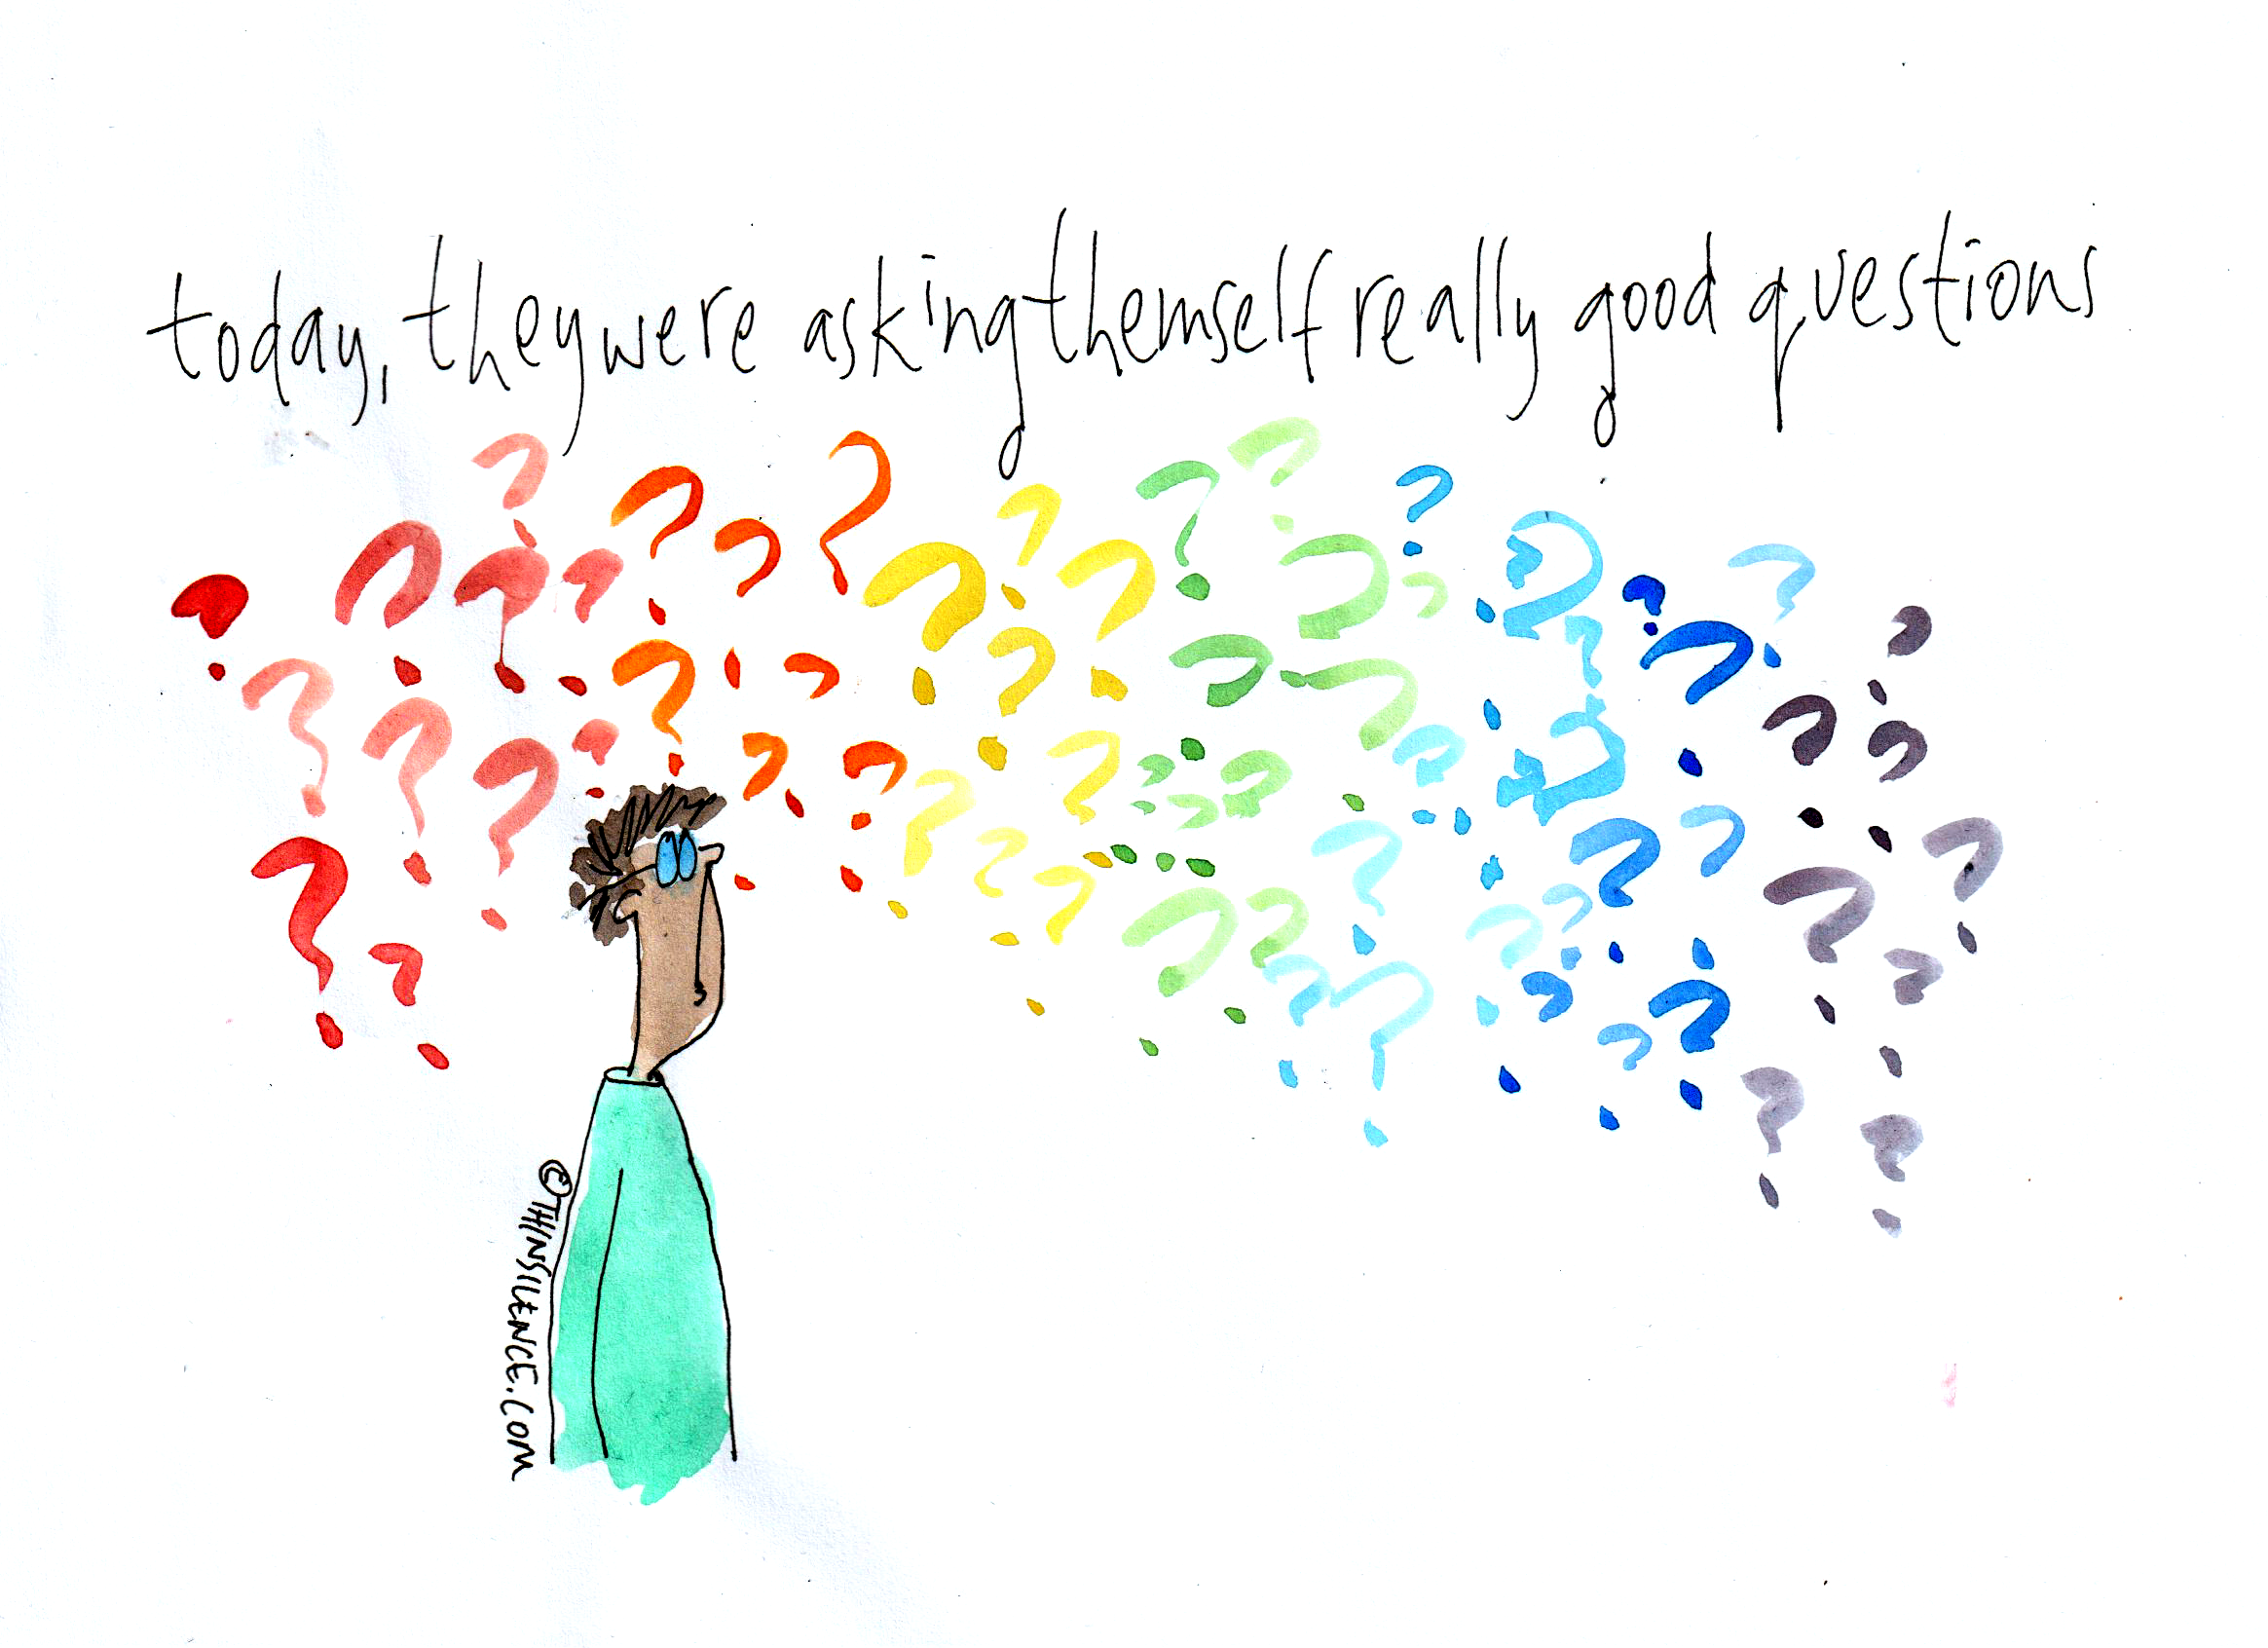 today, they were asking themself really good questions
©THINSILENCE.COM